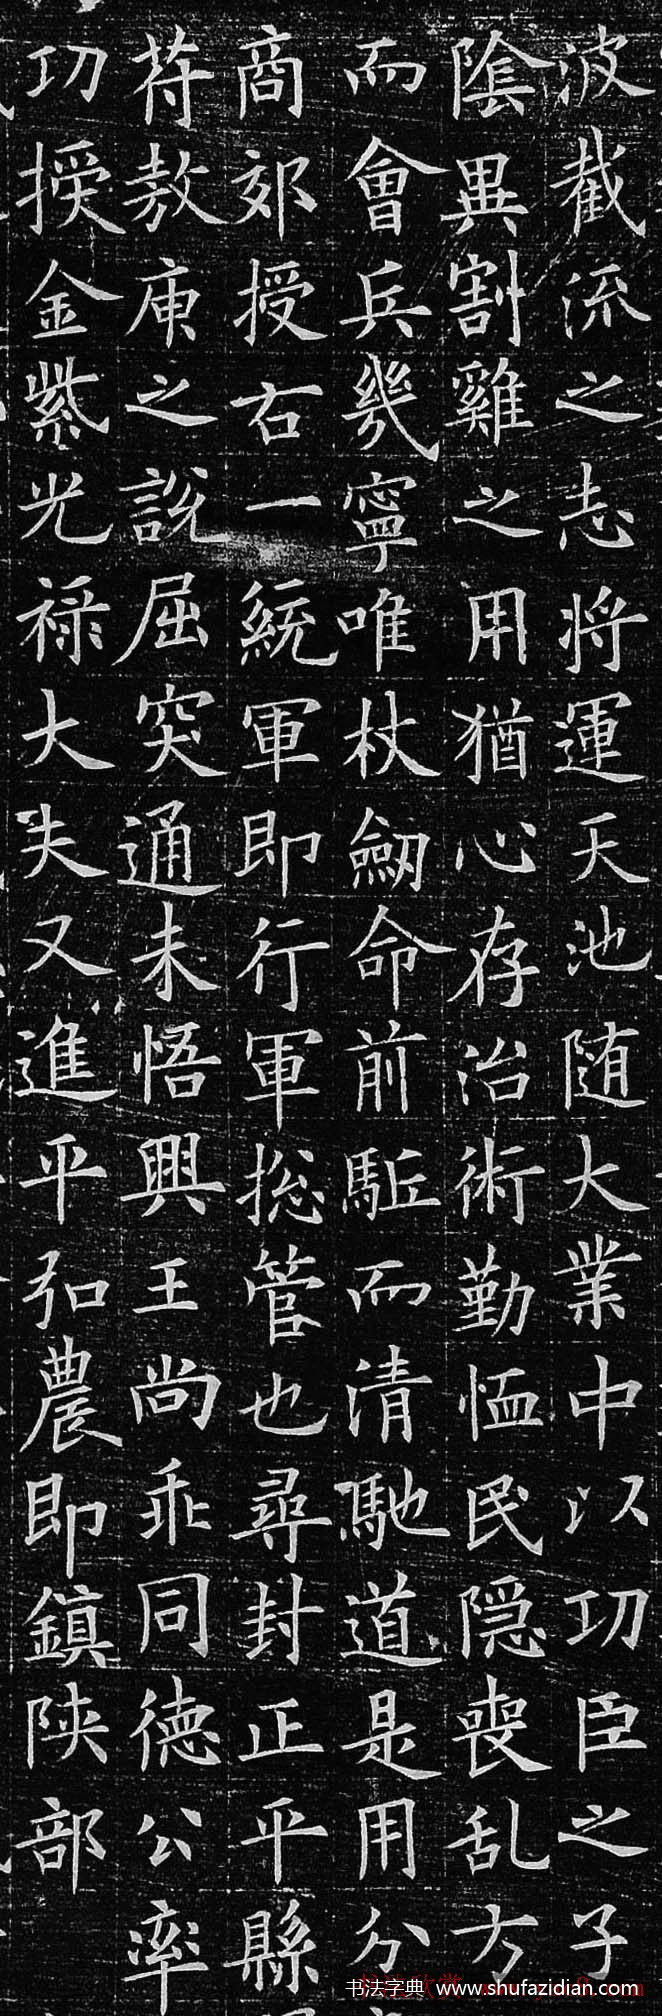 波截流之志将運天池随大業中以功臣之子
陰異割雞之用猶心存治術勤恤民隐喪乱方
而會兵幾寧唯杖劒命前駈而清馳道是用分
商郊授右一統軍即行軍捴管也尋封正平縣
苻敖庾之說屈突通未悟興王尚乖同德公率
功授金紫光禄大夫又進平弘農即鎮陝部
书法字典 www.shufazidian.com